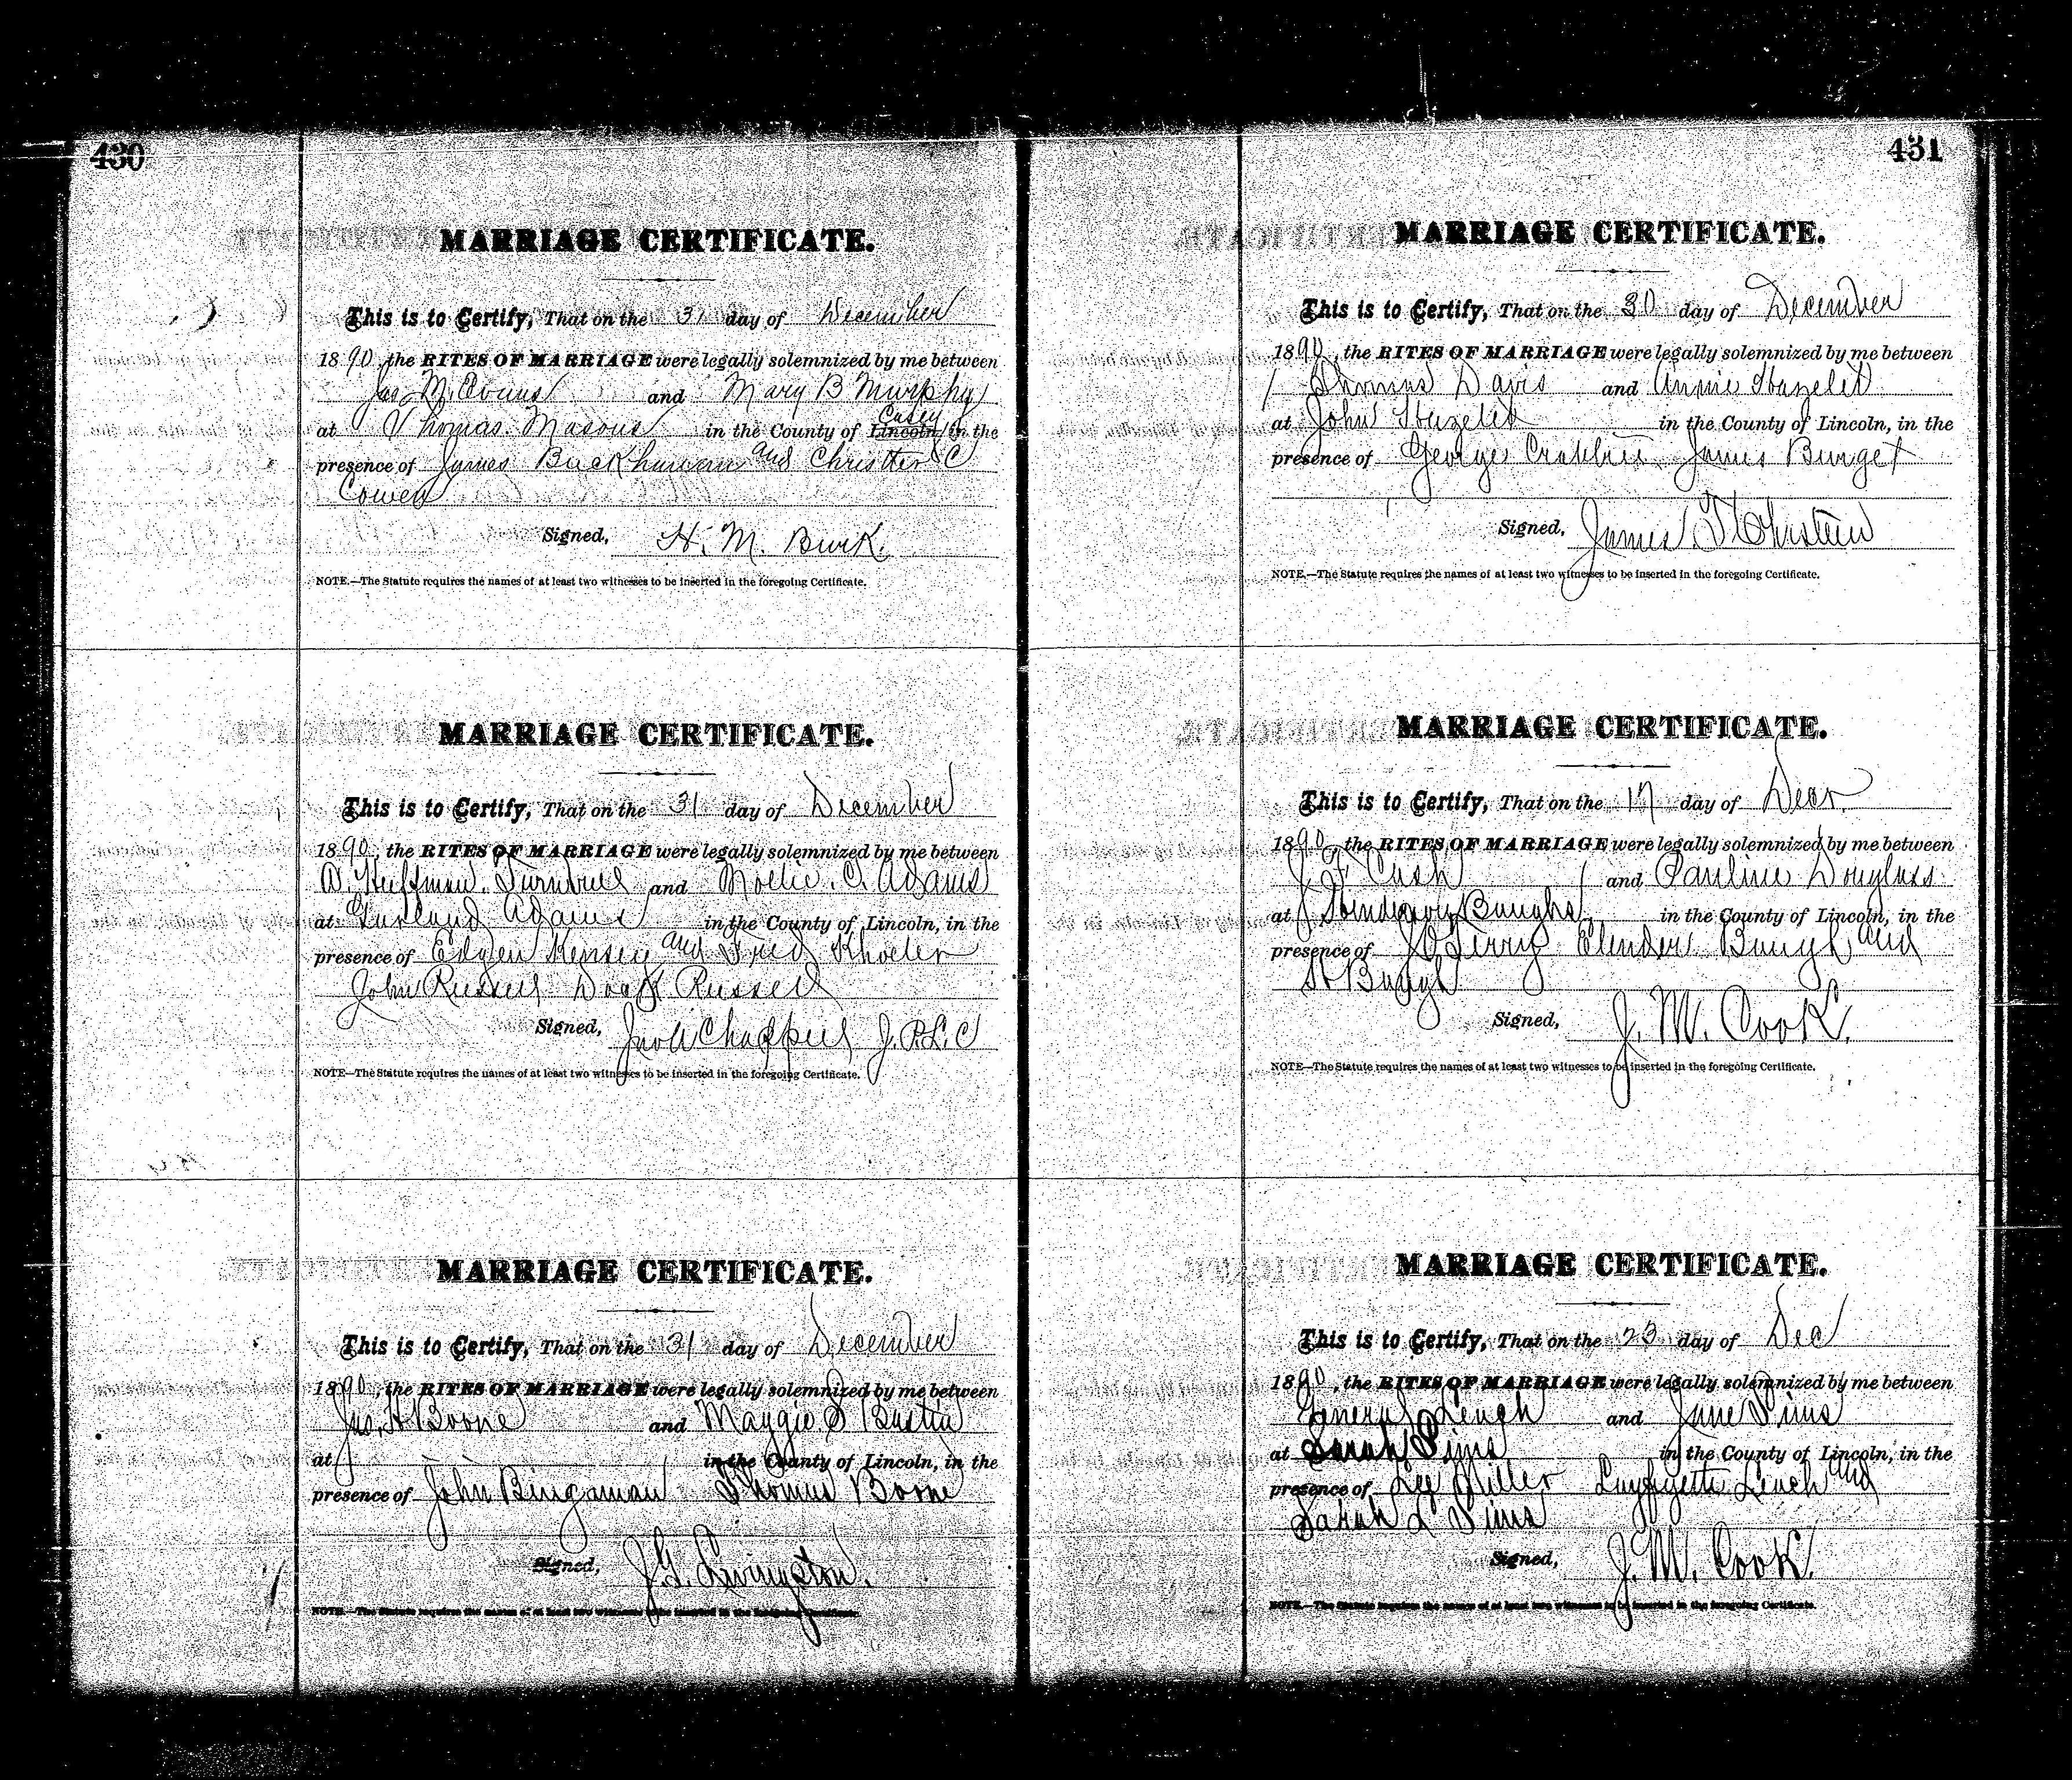 430
MARRIAGE CERTIFICATE.
This is to Certify, That on the 31 day of December
1890, the RITES OF MARRIAGE were legally solemnized by me between
Jas M. Evans and Mary B Murphy
Casey
at Thomas Masons in the County of Lincoln, in the
presence of James Buckhanan and Christter C
Cowen
Signed, H. M. Burk.
NOTE.—The Statute requires the names of at least two witnesses to be inserted in the foregoing Certificate.
MARRIAGE CERTIFICATE.
This is to Certify, That on the 31 day of December
1890, the RITES OF MARRIAGE were legally solemnized by me between
D. Huffman Turnbull and Mollie C. Adams
at Garland Adams in the County of Lincoln, in the
presence of Edgen Kensey and Fred Khoeler
John Russell Doak Russell
Signed, Jno A Chappell J. P. L. C
NOTE—The Statute requires the names of at least two witnesses to be inserted in the foregoing Certificate.
MARRIAGE CERTIFICATE.
This is to Certify, That on the 31 day of December
1890, the RITES OF MARRIAGE were legally solemnized by me between
Jas. H Boone and Maggie S Bastin
at in the County of Lincoln, in the
presence of John Bingaman Thomas Boone
Signed, J. G. Livingston.
NOTE.—The Statute requires the names of at least two witnesses to be inserted in the foregoing Certificate.
431
MARRIAGE CERTIFICATE.
This is to Certify, That on the 30 day of December
1890, the RITES OF MARRIAGE were legally solemnized by me between
Thomas Davis and Annie Hazelet
at John Hazelet in the County of Lincoln, in the
presence of George Crabtree James Burget
Signed, James T
NOTE.—The Statute requires the names of at least two witnesses to be inserted in the foregoing Certificate.
MARRIAGE CERTIFICATE.
This is to Certify, That on the 17 day of Decr.
1890, the RITES OF MARRIAGE were legally solemnized by me between
J. F Cash and Pauline Douglass
at J Henderson Baughs in the County of Lincoln, in the
presence of Terry Elender Baugh and
H Baugh
Signed, J. M. Cook.
NOTE—The Statute requires the names of at least two witnesses to be inserted in the foregoing Certificate.
MARRIAGE CERTIFICATE.
This is to Certify, That on the 23 day of Dec
1890, the RITES OF MARRIAGE were legally solemnized by me between
General Leach and Jane Sims
at Sarah Sims in the County of Lincoln, in the
presence of Lee Miller Layfyette Leach and
Sarah L Sims
Signed, J. M. Cook.
NOTE.—The Statute requires the names of at least two witnesses to be inserted in the foregoing Certificate.